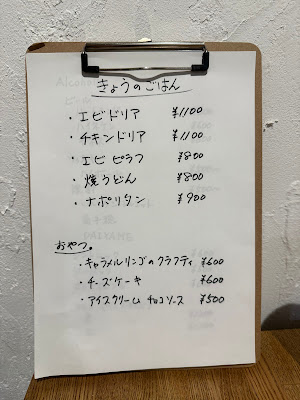 きょうのごはん
・エビドリア ¥1100
・チキンドリア ¥1100
・エビピラフ ¥800
・焼うどん ¥800
・ナポリタン ¥900
おやつ。
・キャラメルリンゴのクラフティ ¥600
・チーズケーキ ¥600
・アイスクリーム チョコソース ¥500